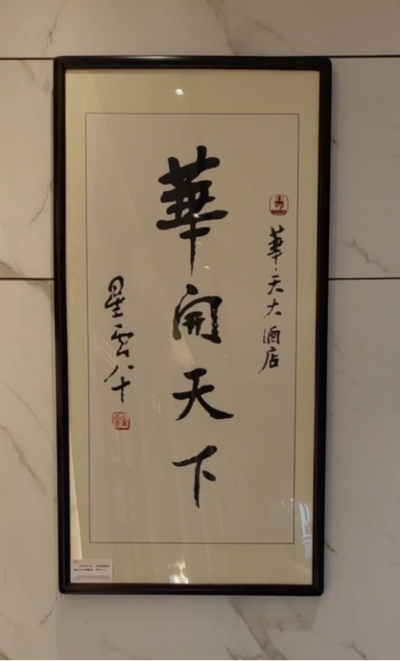 華天大酒店
華開天下
星雲八十